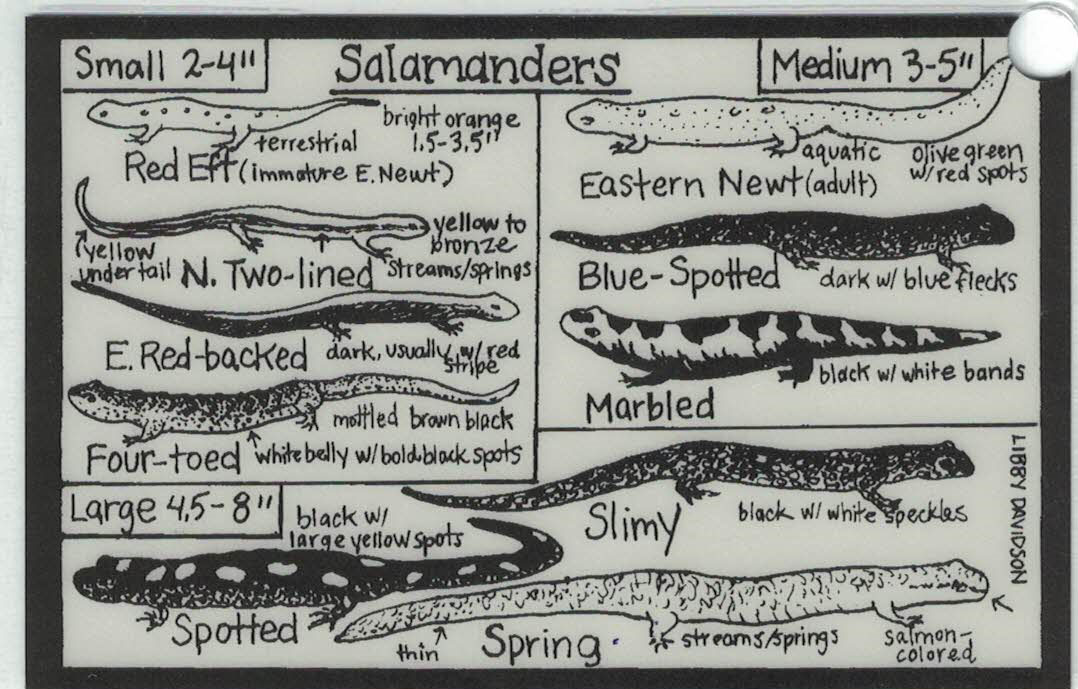 Salamanders
Small 2-4"
bright orange
1.5-3.5"
terrestrial
Red Eft (immature E. Newt)
yellow to
bronze
yellow
under tail
N. Two-lined
streams/springs
E. Red-backed
dark, usually w/ red
stripe
mottled brown black
Four-toed
white belly w/ bold black spots
Medium 3-5"
aquatic
olive green
w/ red spots
Eastern Newt (adult)
Blue-Spotted
dark w/ blue flecks
black w/ white bands
Marbled
Large 4.5-8"
black w/
large yellow spots
Slimy
black w/ white speckles
Spotted
thin
Spring
streams/springs
salmon-
colored
LIBBY DAVIDSON